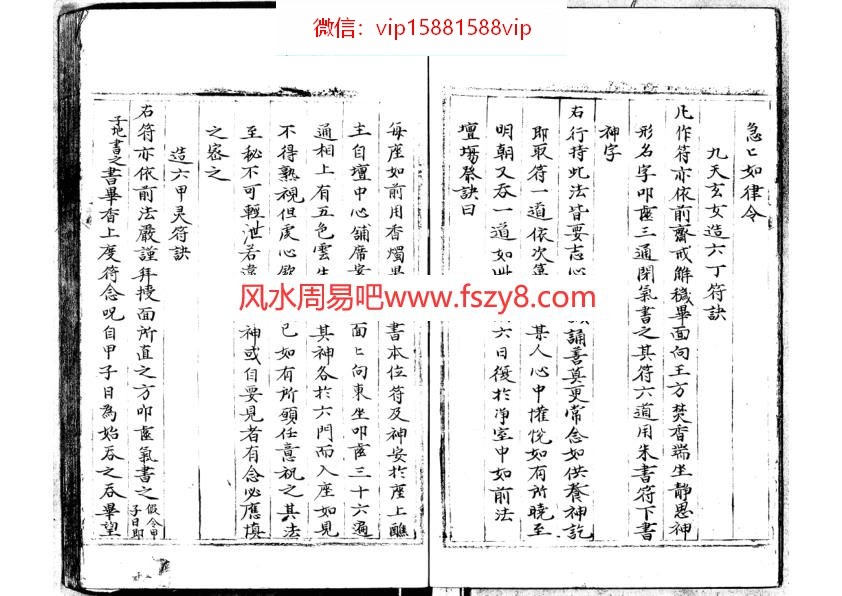 微信：vip15881588vip
急匕如律令
九天玄女造六丁符訣
凡作符亦依前齋戒解穢畢面向王方焚香端坐静思神
形名字叩齒三通閉氣書之其符六道用朱書符下書
神字
右行持此法皆要志心誦善真更常念如供養神訖
即取符一道依次第某人心中懽悦如有所曉至
明朝又吞一道如此六日復於净室中如前法
壇場祭訣曰
每座如前用香燭書本位符及神安於座上醮
主自壇中心鋪席面匕向東坐叩齒三十六遍
通相上有五色雲其神各於六門而入座如見
不得熟視但虔心已如有所願任意祝之其法
至秘不可輕泄若神或自要見者有念必應慎
之密之
造六甲灵符訣
右符亦依前法嚴謹拜授面所直之方叩齒氣書之假令甲子日即
子地書之書畢香上度符念呪自甲子日為始吞之吞畢望
风水周易吧www.fszy8.com